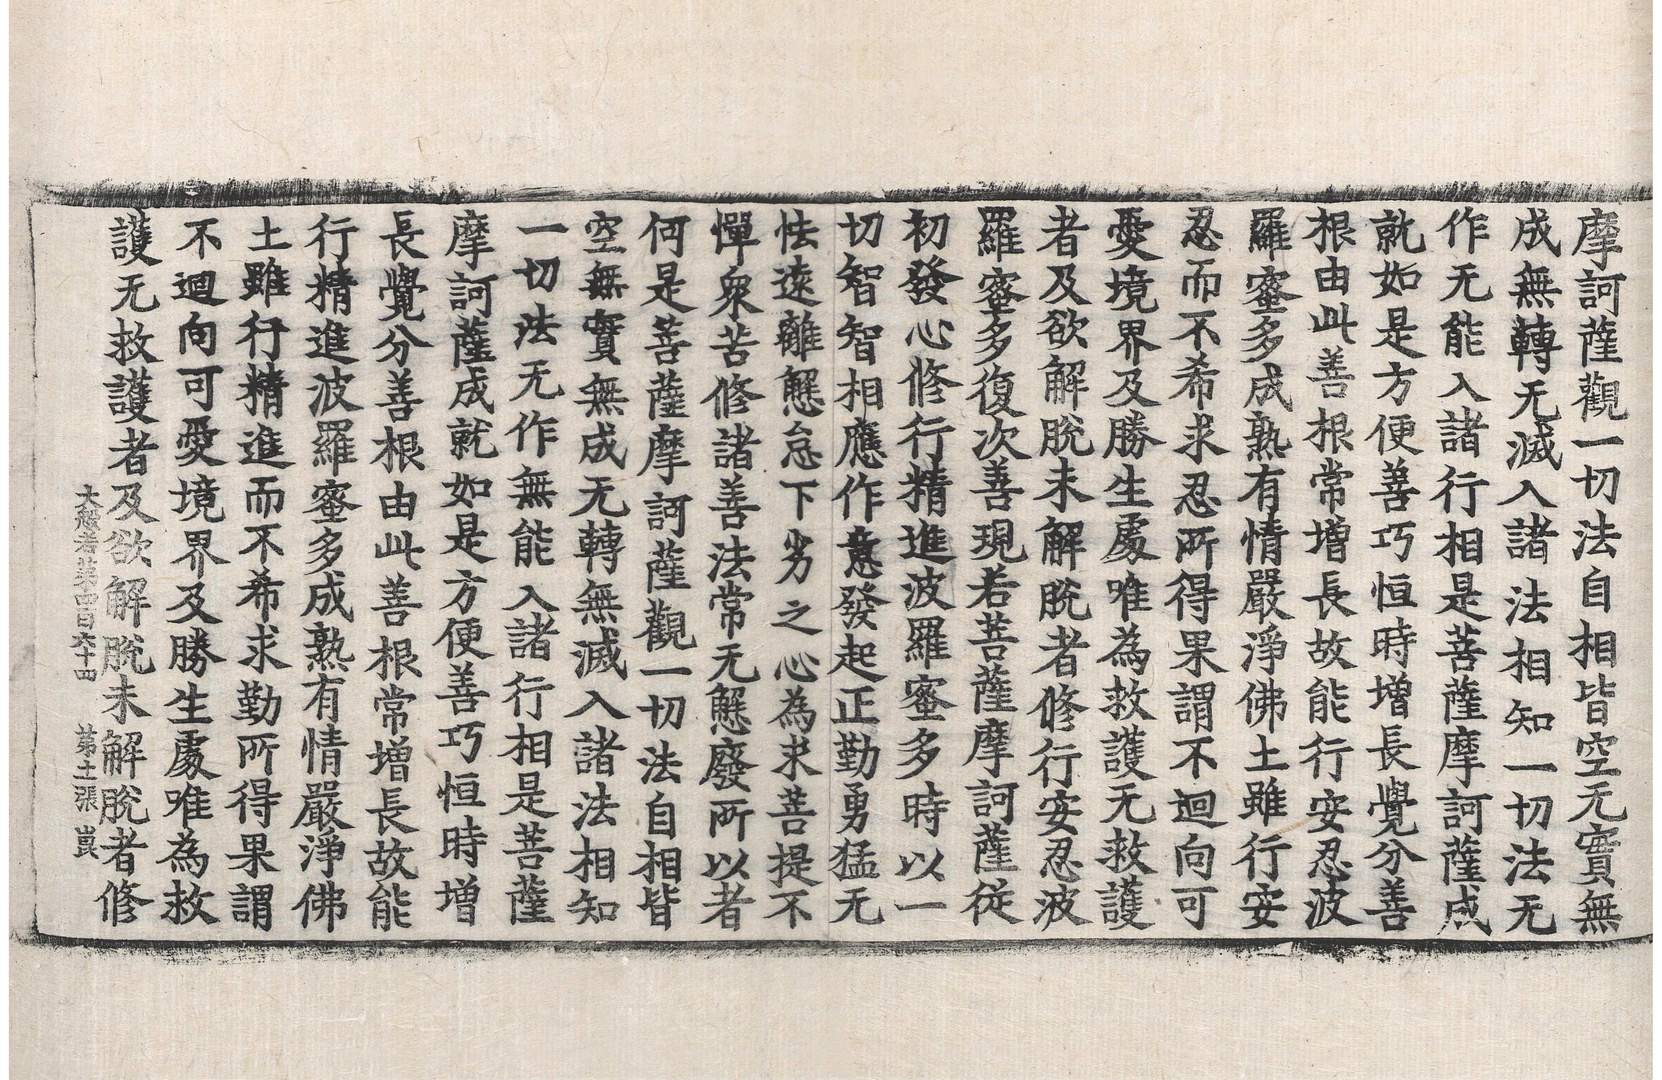 摩訶薩觀一切法自相皆空无實無
成無轉无滅入諸法相知一切法无
作无能入諸行相是菩薩摩訶薩成
就如是方便善巧恒時增長覺分善
根由此善根常增長故能行安忍波
羅蜜多成熟有情嚴淨佛土雖行安
忍而不希求忍所得果謂不迴向可
愛境界及勝生處唯為救護无救護
者及欲解脫未解脫者修行安忍波
羅蜜多復次善現若菩薩摩訶薩從
初發心修行精進波羅蜜多時以一
切智智相應作意發起正勤勇猛无
怯遠離懈怠下劣之心為求菩提不
憚衆苦修諸善法常无懈廢所以者
何是菩薩摩訶薩觀一切法自相皆
空無實無成无轉無滅入諸法相知
一切法无作無能入諸行相是菩薩
摩訶薩成就如是方便善巧恒時增
長覺分善根由此善根常增長故能
行精進波羅蜜多成熟有情嚴淨佛
土雖行精進而不希求勤所得果謂
不迴向可愛境界及勝生處唯為救
護无救護者及欲解脫未解脫者修
大般若第四百六十四 第十一張 崑